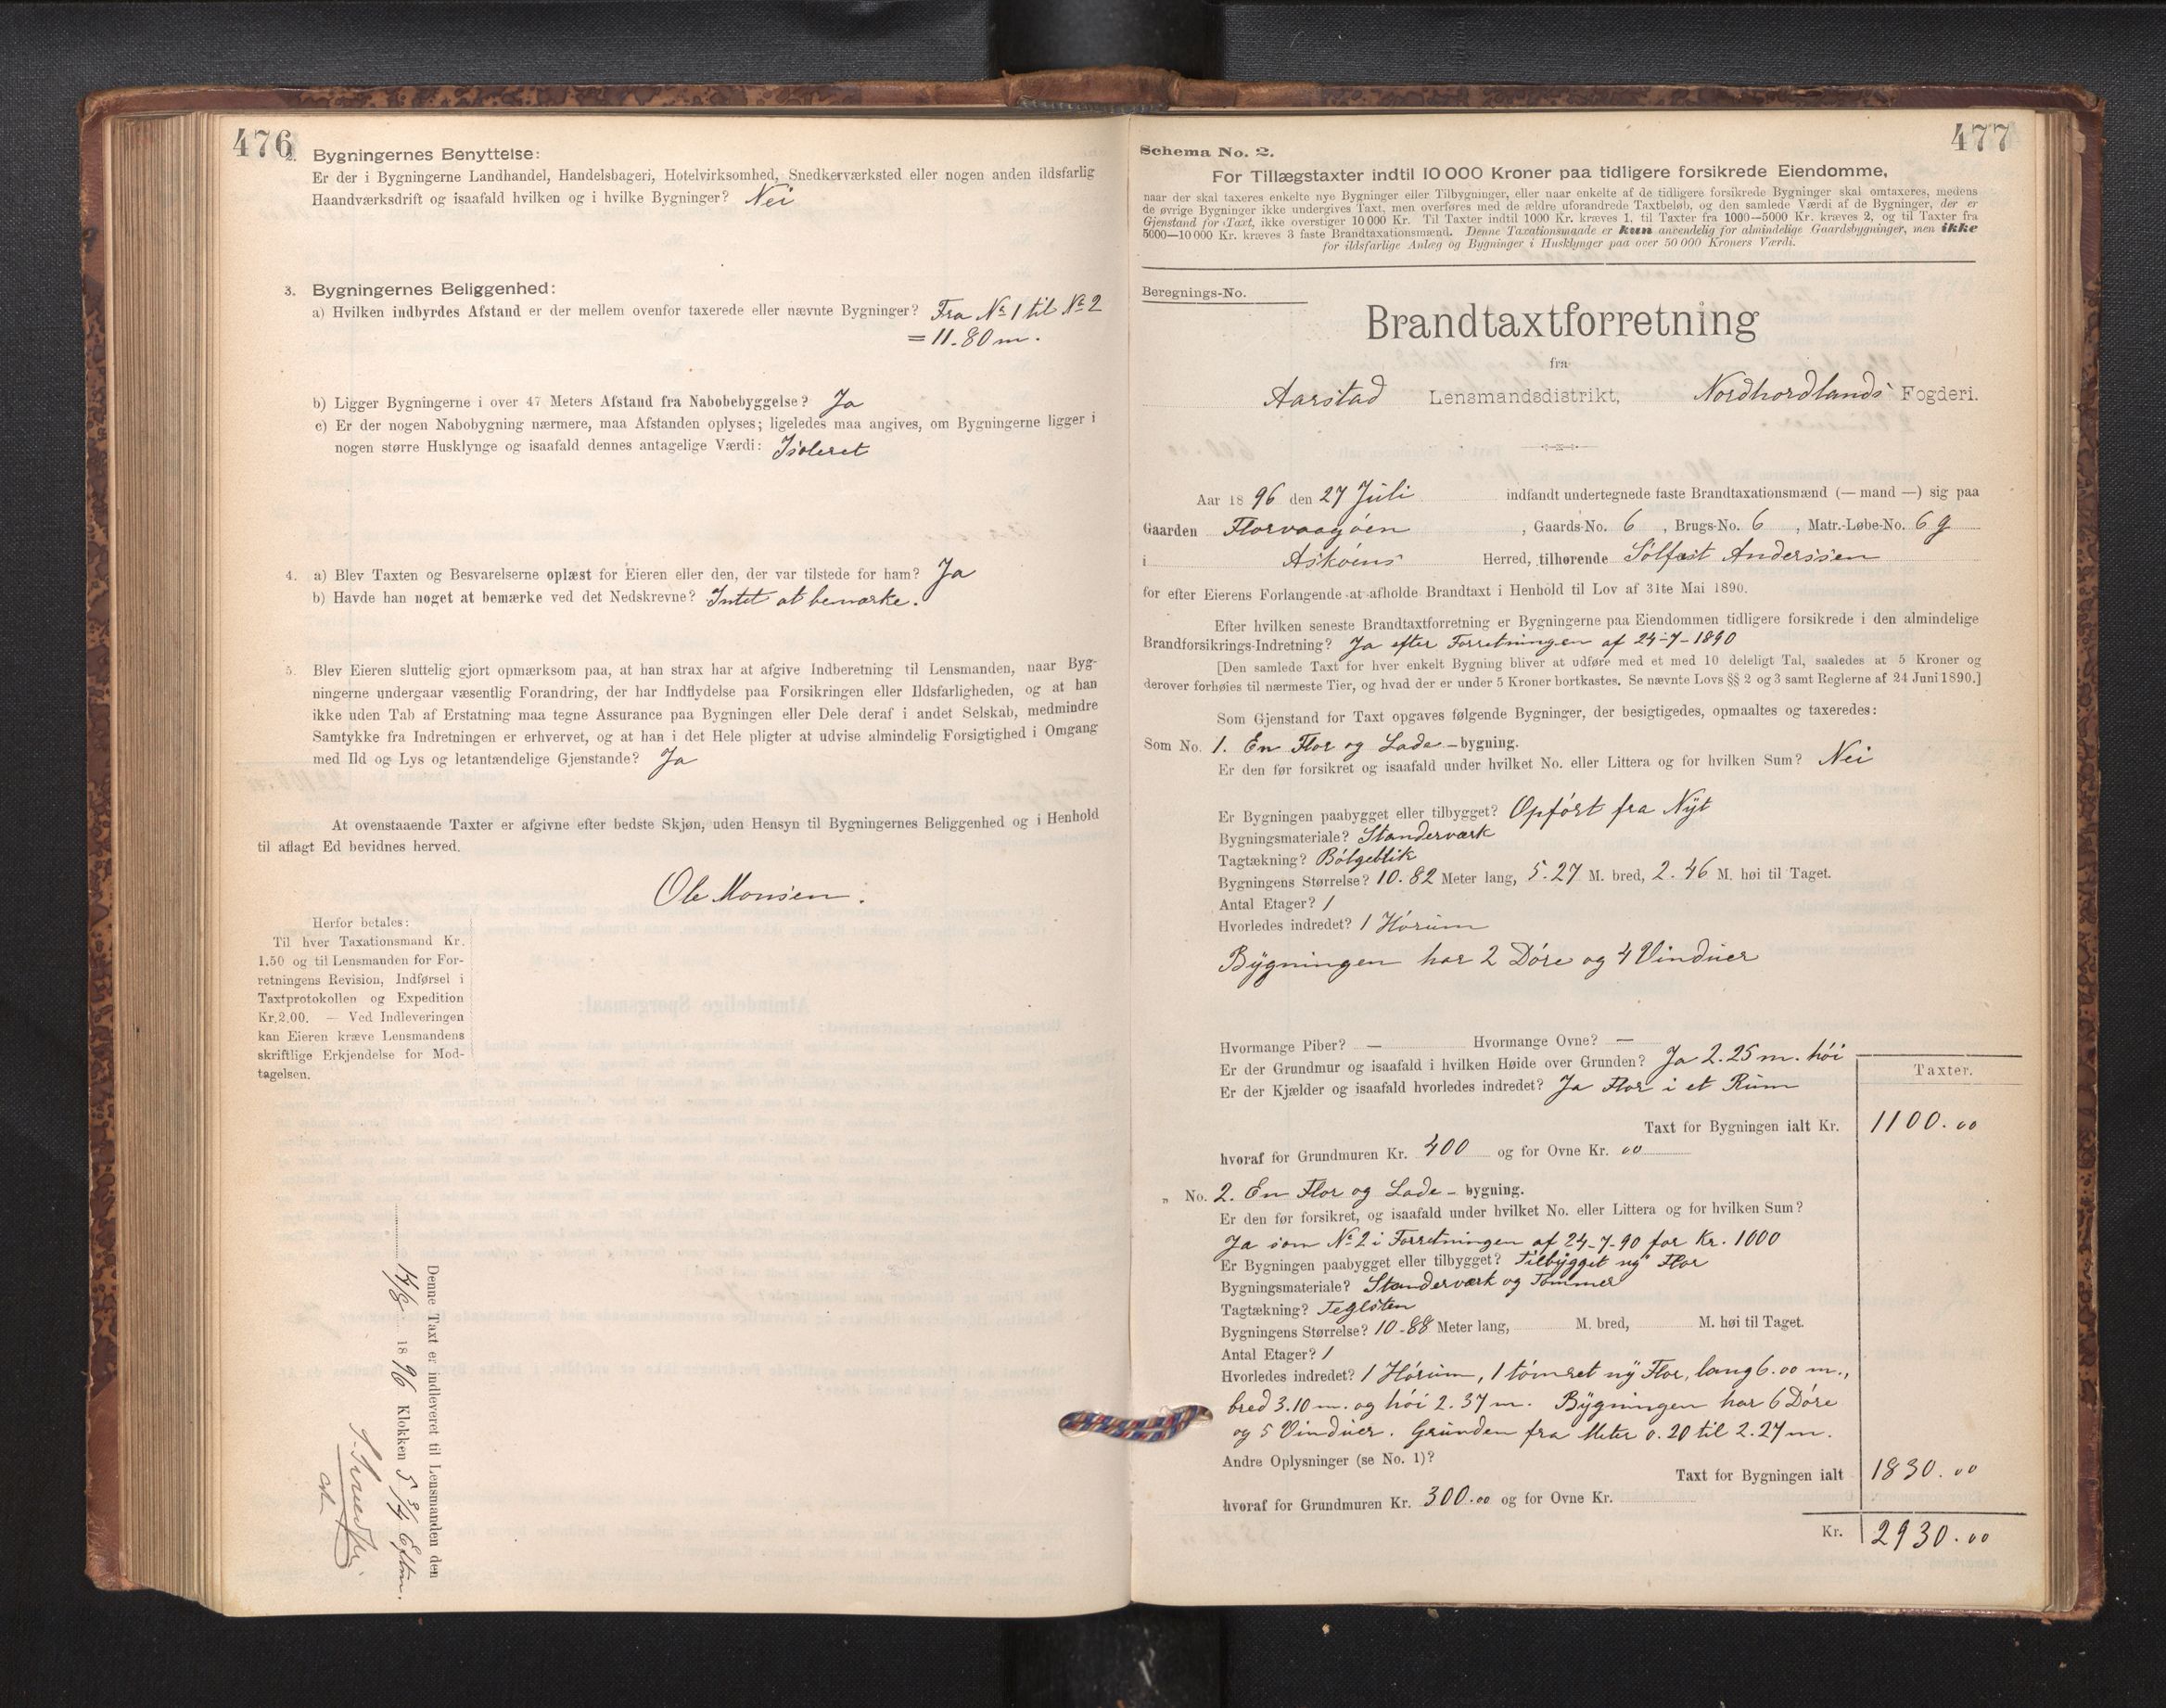 476
2. Bygningernes Benyttelse:
Er der i Bygningerne Landhandel, Handelsbageri, Hotelvirksomhed, Snedkerværksted eller nogen anden ildsfarlig
Haandværksdrift og isaafald hvilken og i hvilke Bygninger? Nei
3. Bygningernes Beliggenhed:
a) Hvilken indbyrdes Afstand er der mellem ovenfor taxerede eller nævnte Bygninger? Fra No 1 til No 2
= 11.80 m.
b) Ligger Bygningerne i over 47 Meters Afstand fra Nabobebyggelse? Ja
c) Er der nogen Nabobygning nærmere, maa Afstanden oplyses; ligeledes maa angives, om Bygningerne ligger i
nogen større Husklynge og isaafald dennes antagelige Værdi: Isoleret
4. a) Blev Taxten og Besvarelserne oplæst for Eieren eller den, der var tilstede for ham? Ja
b) Havde han noget at bemærke ved det Nedskrevne? Intet at bemærke.
5. Blev Eieren sluttelig gjort opmærksom paa, at han strax har at afgive Indberetning til Lensmanden, naar Byg-
ningerne undergaar væsentlig Forandring, der har Indflydelse paa Forsikringen eller Ildsfarligheden, og at han
ikke uden Tab af Erstatning maa tegne Assurance paa Bygningen eller Dele deraf i andet Selskab, medmindre
Samtykke fra Indretningen er erhvervet, og at han i det Hele pligter at udvise almindelig Forsigtighed i Omgang
med Ild og Lys og letantændelige Gjenstande? Ja
At ovenstaaende Taxter er afgivne efter bedste Skjøn, uden Hensyn til Bygningernes Beliggenhed og i Henhold
til aflagt Ed bevidnes herved.
Ole Monsen.
Herfor betales:
Til hver Taxationsmand Kr.
1.50 og til Lensmanden for For-
retningens Revision, Indførsel i
Taxtprotokollen og Expedition
Kr. 2.00. — Ved Indleveringen
kan Eieren kræve Lensmandens
skriftlige Erkjendelse for Mod-
tagelsen.
Denne Taxt er indleveret til Lensmanden den
14/8 1896 Klokken 5 3/4 Eftm.
477
Schema No. 2.
For Tillægstaxter indtil 10 000 Kroner paa tidligere forsikrede Eiendomme,
naar der skal taxeres enkelte nye Bygninger eller Tilbygninger, eller naar enkelte af de tidligere forsikrede Bygninger skal omtaxeres, medens
de øvrige Bygninger ikke undergives Taxt, men overføres med de ældre uforandrede Taxtbeløb, og den samlede Værdi af de Bygninger, der er
Gjenstand for Taxt, ikke overstiger 10 000 Kr. Til Taxter indtil 1000 Kr. kræves 1, til Taxter fra 1000—5000 Kr. kræves 2, og til Taxter fra
5000—10 000 Kr. kræves 3 faste Brandtaxationsmænd. Denne Taxationsmaade er kun anvendelig for almindelige Gaardsbygninger, men ikke
for ildsfarlige Anlæg og Bygninger i Husklynger paa over 50 000 Kroners Værdi.
Beregnings-No.
Brandtaxtforretning
fra
Aarstad Lensmandsdistrikt, Nordhordlands Fogderi.
Aar 1896 den 27 Juli indfandt undertegnede faste Brandtaxationsmænd (— mand —) sig paa
Gaarden Florvaagøen, Gaards-No. 6, Brugs-No. 6, Matr.-Løbe-No. 6 g
i Askøens Herred, tilhørende Sølfast Anderssen
for efter Eierens Forlangende at afholde Brandtaxt i Henhold til Lov af 31te Mai 1890.
Efter hvilken seneste Brandtaxtforretning er Bygningerne paa Eiendommen tidligere forsikrede i den almindelige
Brandforsikrings-Indretning? Ja efter Forretningen af 24-7-1890
[Den samlede Taxt for hver enkelt Bygning bliver at udføre med et med 10 deleligt Tal, saaledes at 5 Kroner og
derover forhøies til nærmeste Tier, og hvad der er under 5 Kroner bortkastes. Se nævnte Lovs §§ 2 og 3 samt Reglerne af 24 Juni 1890.]
Som Gjenstand for Taxt opgaves følgende Bygninger, der besigtigedes, opmaaltes og taxeredes:
Som No. 1. En Flor og Lade-bygning.
Er den før forsikret og isaafald under hvilket No. eller Littera og for hvilken Sum? Nei
Er Bygningen paabygget eller tilbygget? Opført fra Nyt
Bygningsmateriale? Standerværk
Tagtækning? Bølgeblik
Bygningens Størrelse? 10.82 Meter lang, 5.27 M. bred, 2.46 M. høi til Taget.
Antal Etager? 1
Hvorledes indredet? 1 Hørum
Bygningen har 2 Døre og 4 Vinduer
Hvormange Piber? — Hvormange Ovne? —
Er der Grundmur og isaafald i hvilken Høide over Grunden? Ja 2.25 m. høi
Er der Kjælder og isaafald hvorledes indredet? Ja Flor i et Rum
Taxter.
Taxt for Bygningen ialt Kr. 1100.00
hvoraf for Grundmuren Kr. 400 og for Ovne Kr. 00
„ No. 2. En Flor og Lade-bygning.
Er den før forsikret, og isaafald under hvilket No. eller Littera og for hvilken Sum?
Ja som No 2 i Forretningen af 24-7-90 for Kr. 1000
Er Bygningen paabygget eller tilbygget? Tilbygget ny Flor
Bygningsmateriale? Standerværk og Tømmer
Tagtækning? Teglsten
Bygningens Størrelse? 10-88 Meter lang, M. bred, M. høi til Taget.
Antal Etager? 1
Hvorledes indredet? 1 Hørum, 1 tømret ny Flor, lang 6.00 m.,
bred 3.10 m. og høi 2.37 m. Bygningen har 6 Døre
og 5 Vinduer. Grunden fra Meter 0.20 til 2.27 m.
Andre Oplysninger (se No. 1)?
Taxt for Bygningen ialt 1830.00
hvoraf for Grundmuren Kr. 300.00 og for Ovne Kr.
Kr. 2930.00